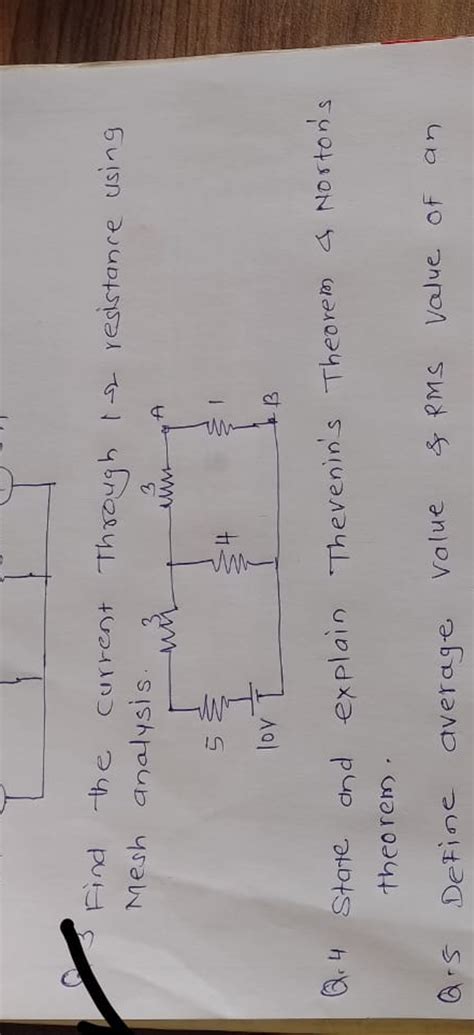 Q.3 Find the current Through 1Ω resistance using
Mesh analysis.
3
3
A
5
4
1
10V
B
Q.4 State and explain Thevenin's Theorem & Norton's
theorem.
Q.5 Define average value & RMS value of an